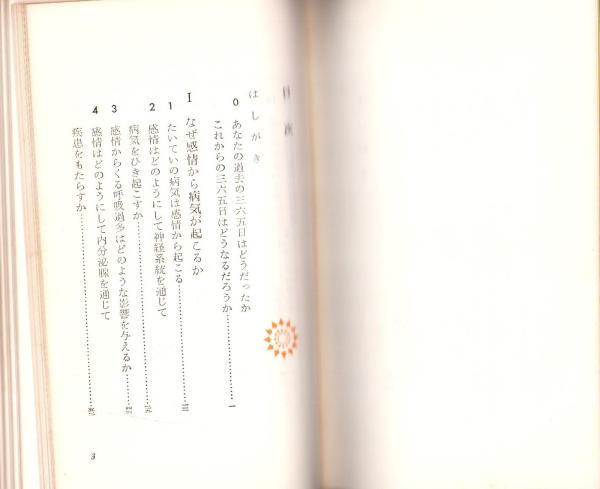 目次
はしがき
0 あなたの過去の三六五日はどうだったか
これからの三六五日はどうなるだろうか…………1
I なぜ感情から病気が起こるか
1 たいていの病気は感情から起こる…………
2 感情はどのようにして神経系統を通じて
病気をひき起こすか…………
3 感情からくる呼吸過多はどのような影響を与えるか…………
4 感情はどのようにして内分泌腺を通じて
疾患をもたらすか…………
3